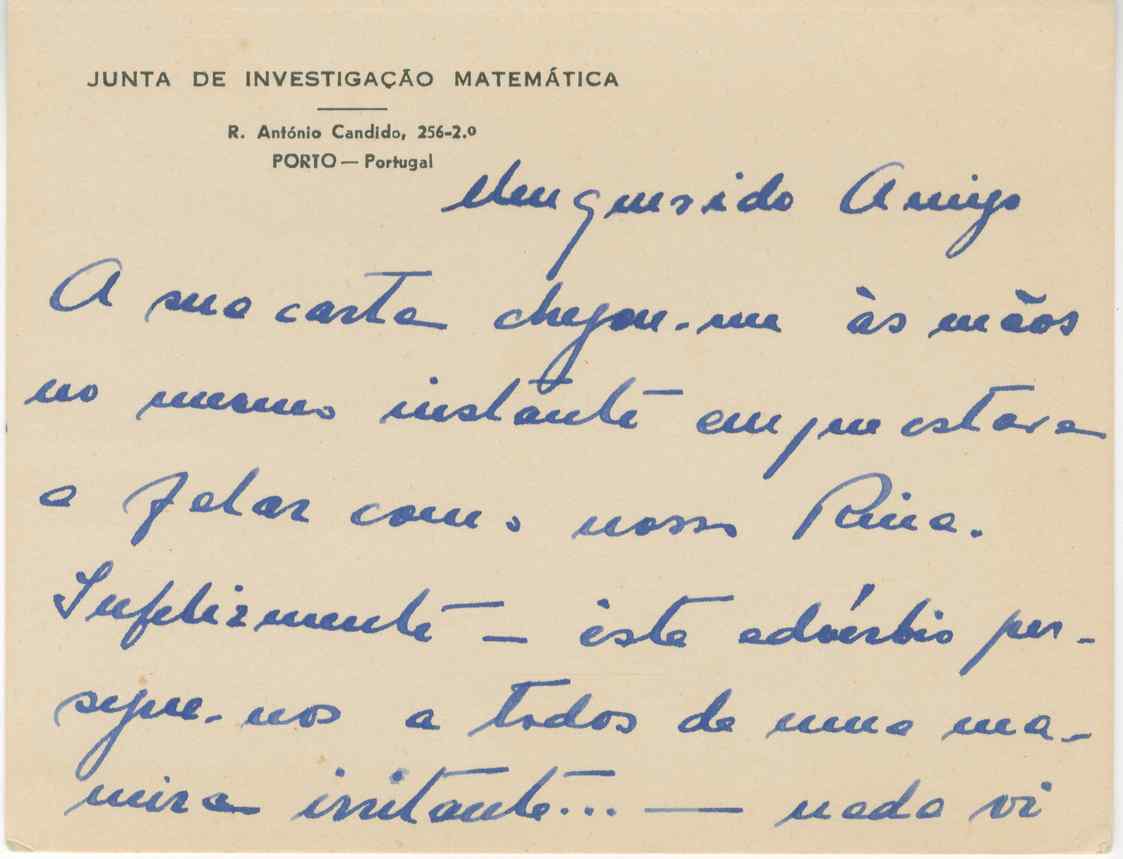 JUNTA DE INVESTIGAÇÃO MATEMÁTICA
R. António Candido, 256-2.º
PORTO — Portugal
Meu querido Amigo
A sua carta chegou-me às mãos
no mesmo instante em que estava
a falar com o nosso
Infelizmente — êste advérbio per-
segue-nos a todos de uma ma-
neira irritante... — nada vi